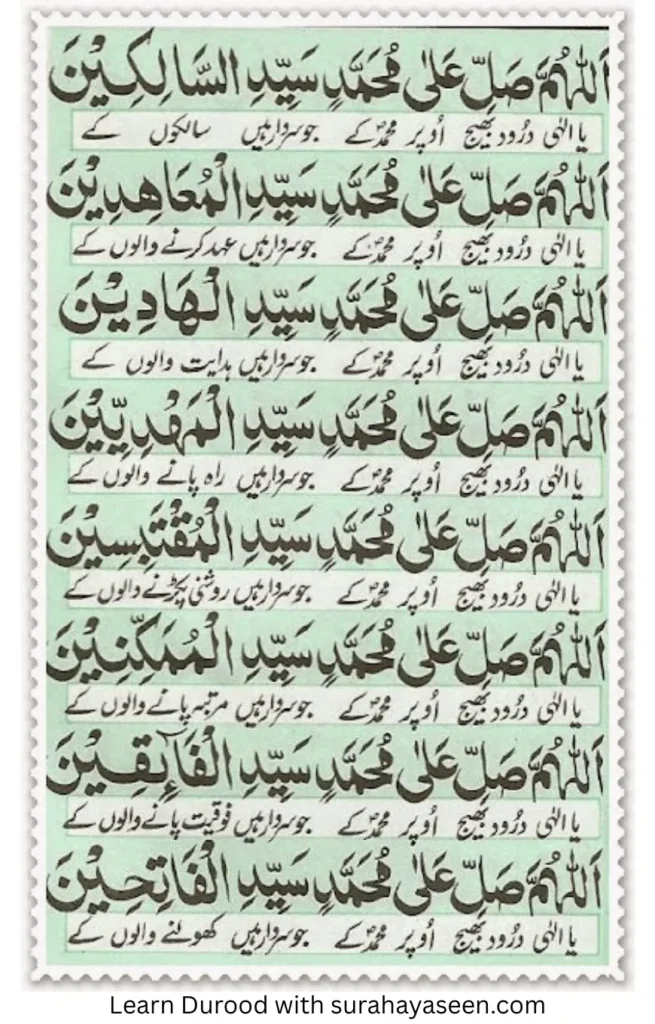 اَللّٰهُمَّ صَلِّ عَلٰى مُحَمَّدٍ سَيِّدِ السَّالِكِيْنَ
یا الٰہی درُود بھیج اُوپر محمدؐ کے جو سردار ہیں سالکوں کے
اَللّٰهُمَّ صَلِّ عَلٰى مُحَمَّدٍ سَيِّدِ الْمُعَاهِدِيْنَ
یا الٰہی درُود بھیج اُوپر محمدؐ کے جو سردار ہیں عہد کرنے والوں کے
اَللّٰهُمَّ صَلِّ عَلٰى مُحَمَّدٍ سَيِّدِ الْهَادِيْنَ
یا الٰہی درُود بھیج اُوپر محمدؐ کے جو سردار ہیں ہدایت والوں کے
اَللّٰهُمَّ صَلِّ عَلٰى مُحَمَّدٍ سَيِّدِ الْمَهْدِيِّيْنَ
یا الٰہی درُود بھیج اُوپر محمدؐ کے جو سردار ہیں راہ پانے والوں کے
اَللّٰهُمَّ صَلِّ عَلٰى مُحَمَّدٍ سَيِّدِ الْمُقْتَبِسِيْنَ
یا الٰہی درُود بھیج اُوپر محمدؐ کے جو سردار ہیں روشنی پکڑنے والوں کے
اَللّٰهُمَّ صَلِّ عَلٰى مُحَمَّدٍ سَيِّدِ الْمُمَكِّنِيْنَ
یا الٰہی درُود بھیج اُوپر محمدؐ کے جو سردار ہیں مرتبہ پانے والوں کے
اَللّٰهُمَّ صَلِّ عَلٰى مُحَمَّدٍ سَيِّدِ الْفَآئِقِيْنَ
یا الٰہی درُود بھیج اُوپر محمدؐ کے جو سردار ہیں فوقیت پانے والوں کے
اَللّٰهُمَّ صَلِّ عَلٰى مُحَمَّدٍ سَيِّدِ الْفَاتِحِيْنَ
یا الٰہی درُود بھیج اُوپر محمدؐ کے جو سردار ہیں کھولنے والوں کے
Learn Durood with surahayaseen.com